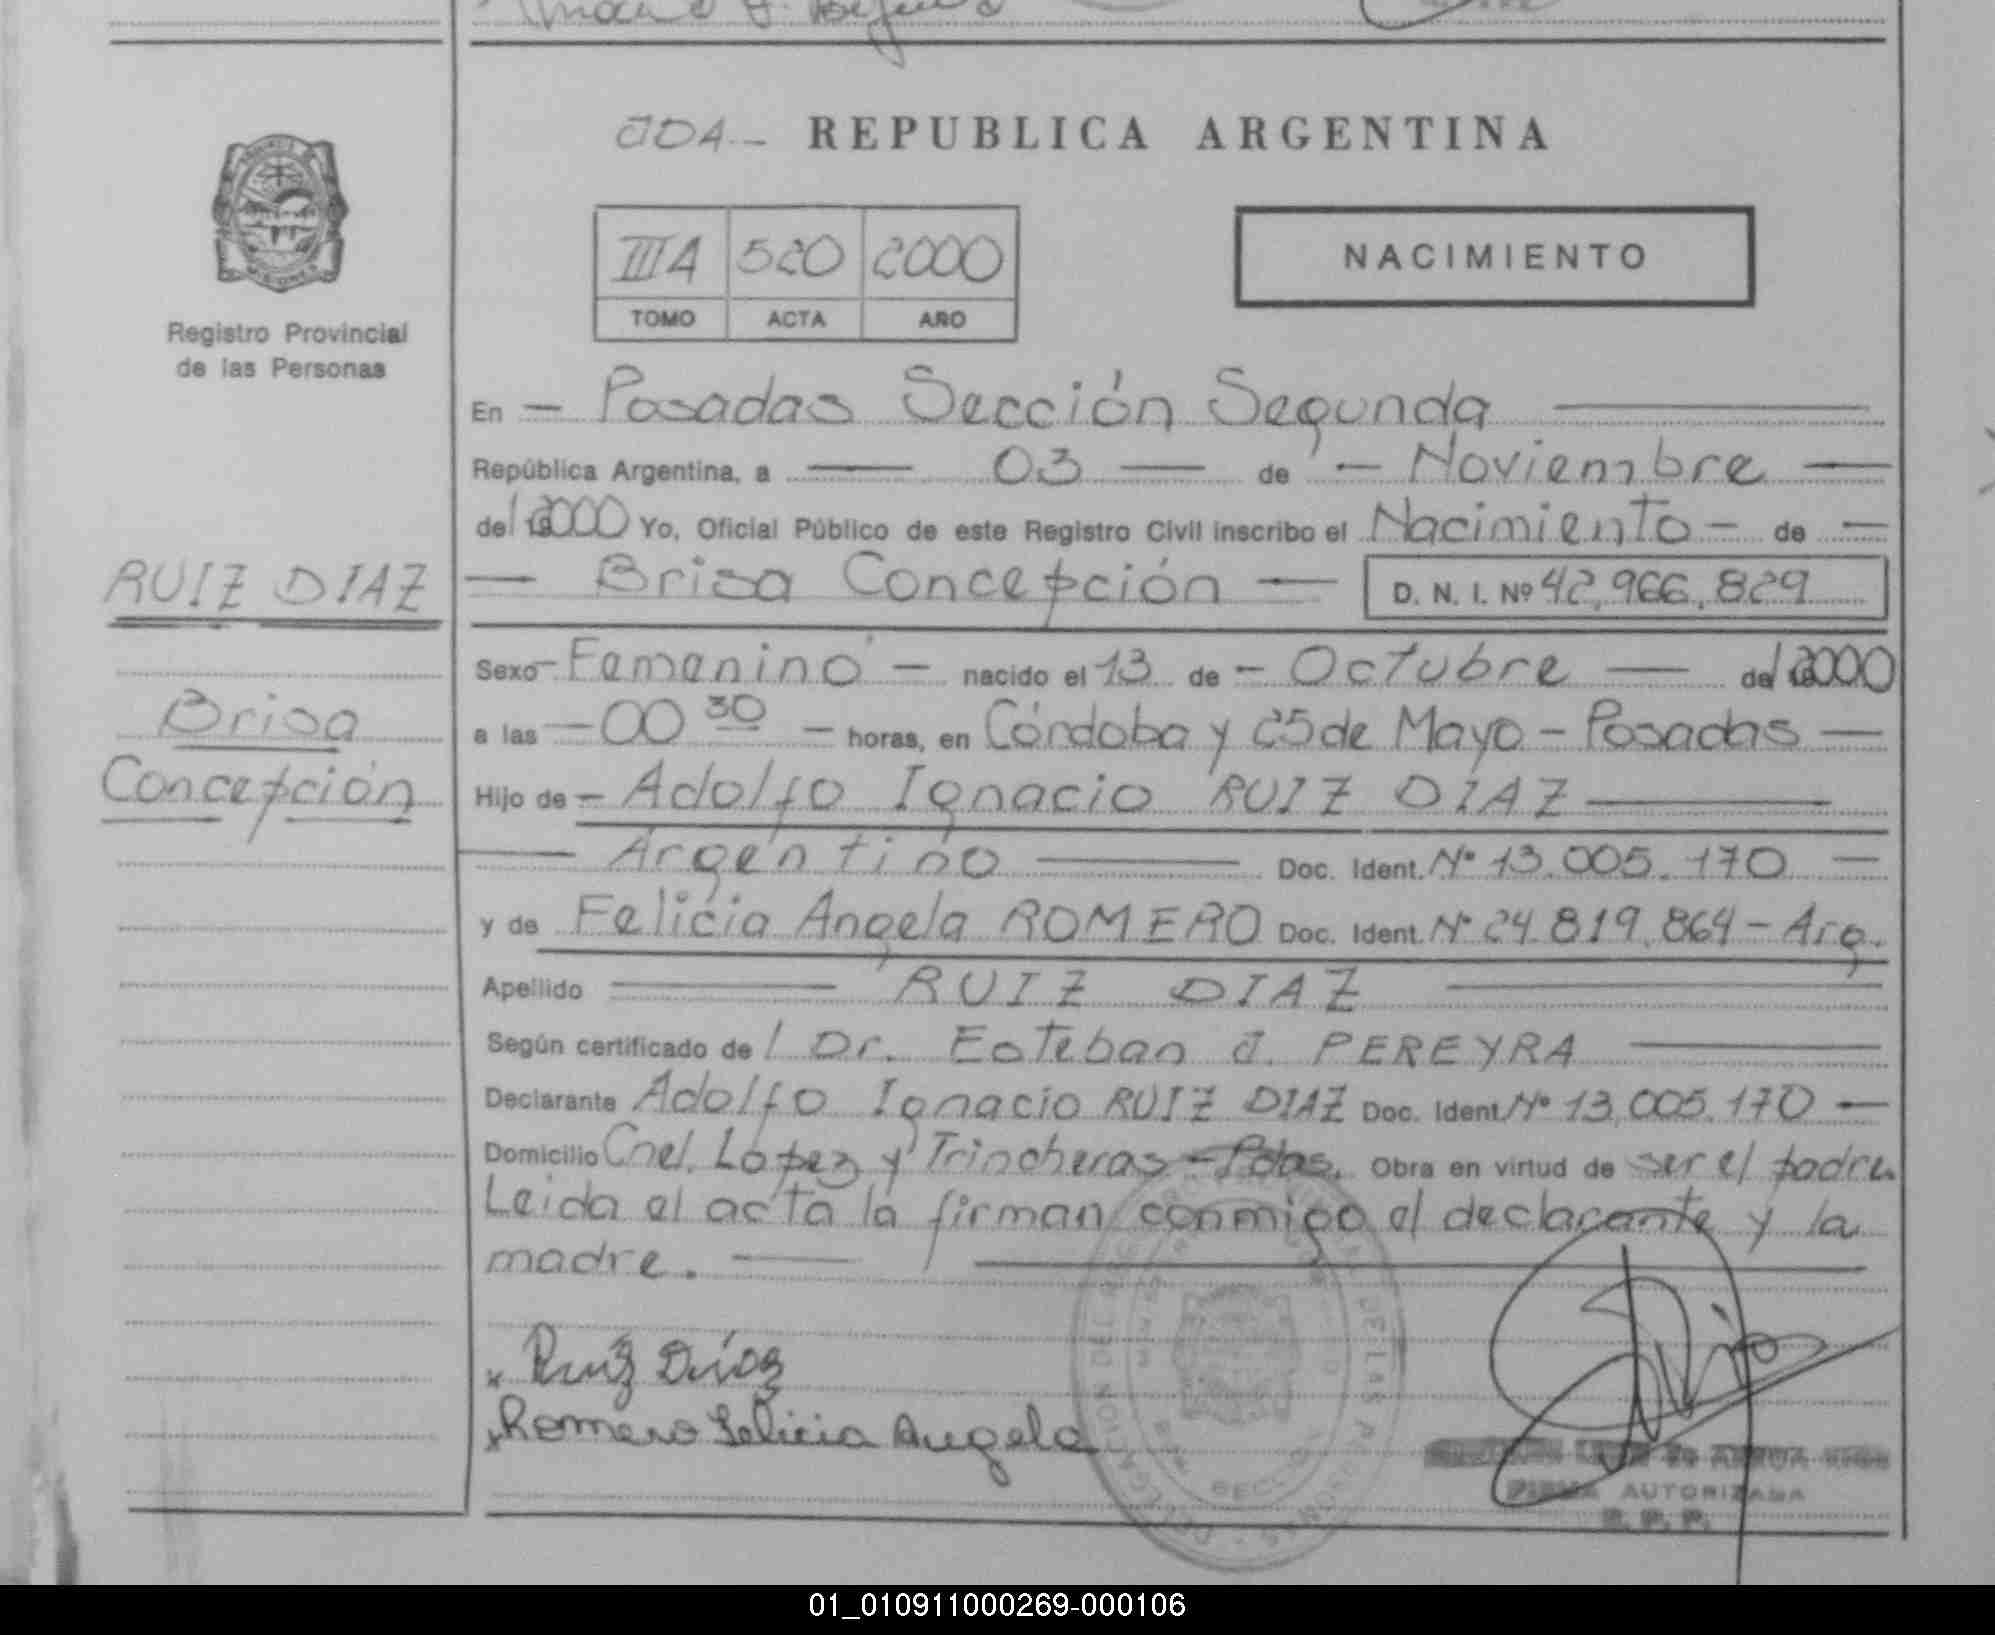 JDA.- REPUBLICA ARGENTINA
IIIA 520 2000
TOMO ACTA AÑO
NACIMIENTO
Registro Provincial
de las Personas
En - Posadas Sección Segunda
República Argentina, a 03 de - Noviembre
del 2000 Yo, Oficial Público de este Registro Civil inscribo el Nacimiento - de
RUIZ DIAZ
Brisa Concepción D. N. I. Nº 42.966.829
Sexo - Femenino - nacido el 13 de - Octubre del 2000
Brisa
a las - 00 30 - horas, en Córdoba y 25 de Mayo - Posadas
Concepción
Hijo de - Adolfo Ignacio RUIZ DIAZ
Argentino Doc. Ident. Nº 13.005.170
y de Felicia Angela ROMERO Doc. Ident. Nº 24.819.864 - Arg.
Apellido RUIZ DIAZ
Según certificado de / Dr. Esteban J. PEREYRA
Declarante Adolfo Ignacio RUIZ DIAZ Doc. Ident. Nº 13.005.170
Domicilio Cnel. López y Trincheras - Pdas. Obra en virtud de ser el padre.
Leida el acta la firman conmigo el declarante y la
madre.
x Ruiz Díaz
x Romero Felicia Angela
FIRMA AUTORIZADA
R. P. P.
01_010911000269-000106